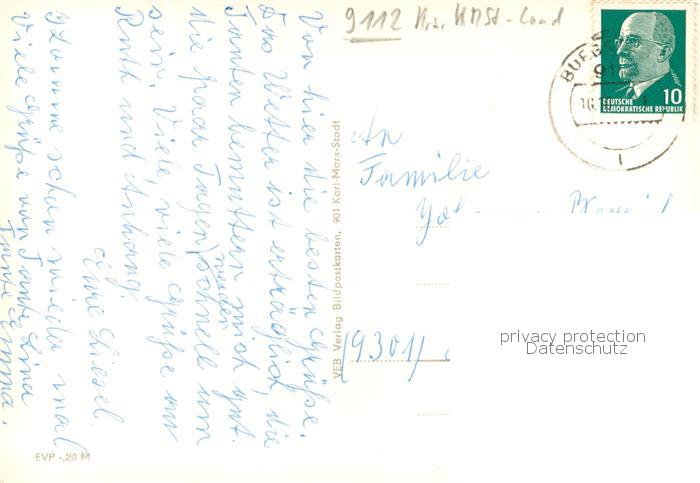 9112 Krs. KMSt-Land
BURGS
91
16.
DEUTSCHE
DEMOKRATISCHE REPUBLIK
10
An
Familie
(9301)
privacy protection
Datenschutz
VEB Verlag Bildpostkarten, 901 Karl-Marx-Stadt
EVP -,20 M
Von hier die besten Grüße.
Das Wetter ist erträglich, die
Tanten bemuttern mich gut.
Die paar Tagen werden schnell um
sein. Viele viele Grüße an
Ruth und Anhang.
Eure Liesel.
Komme schon wieder mal
Viele Grüße von Tante Lina
Tante Emma.